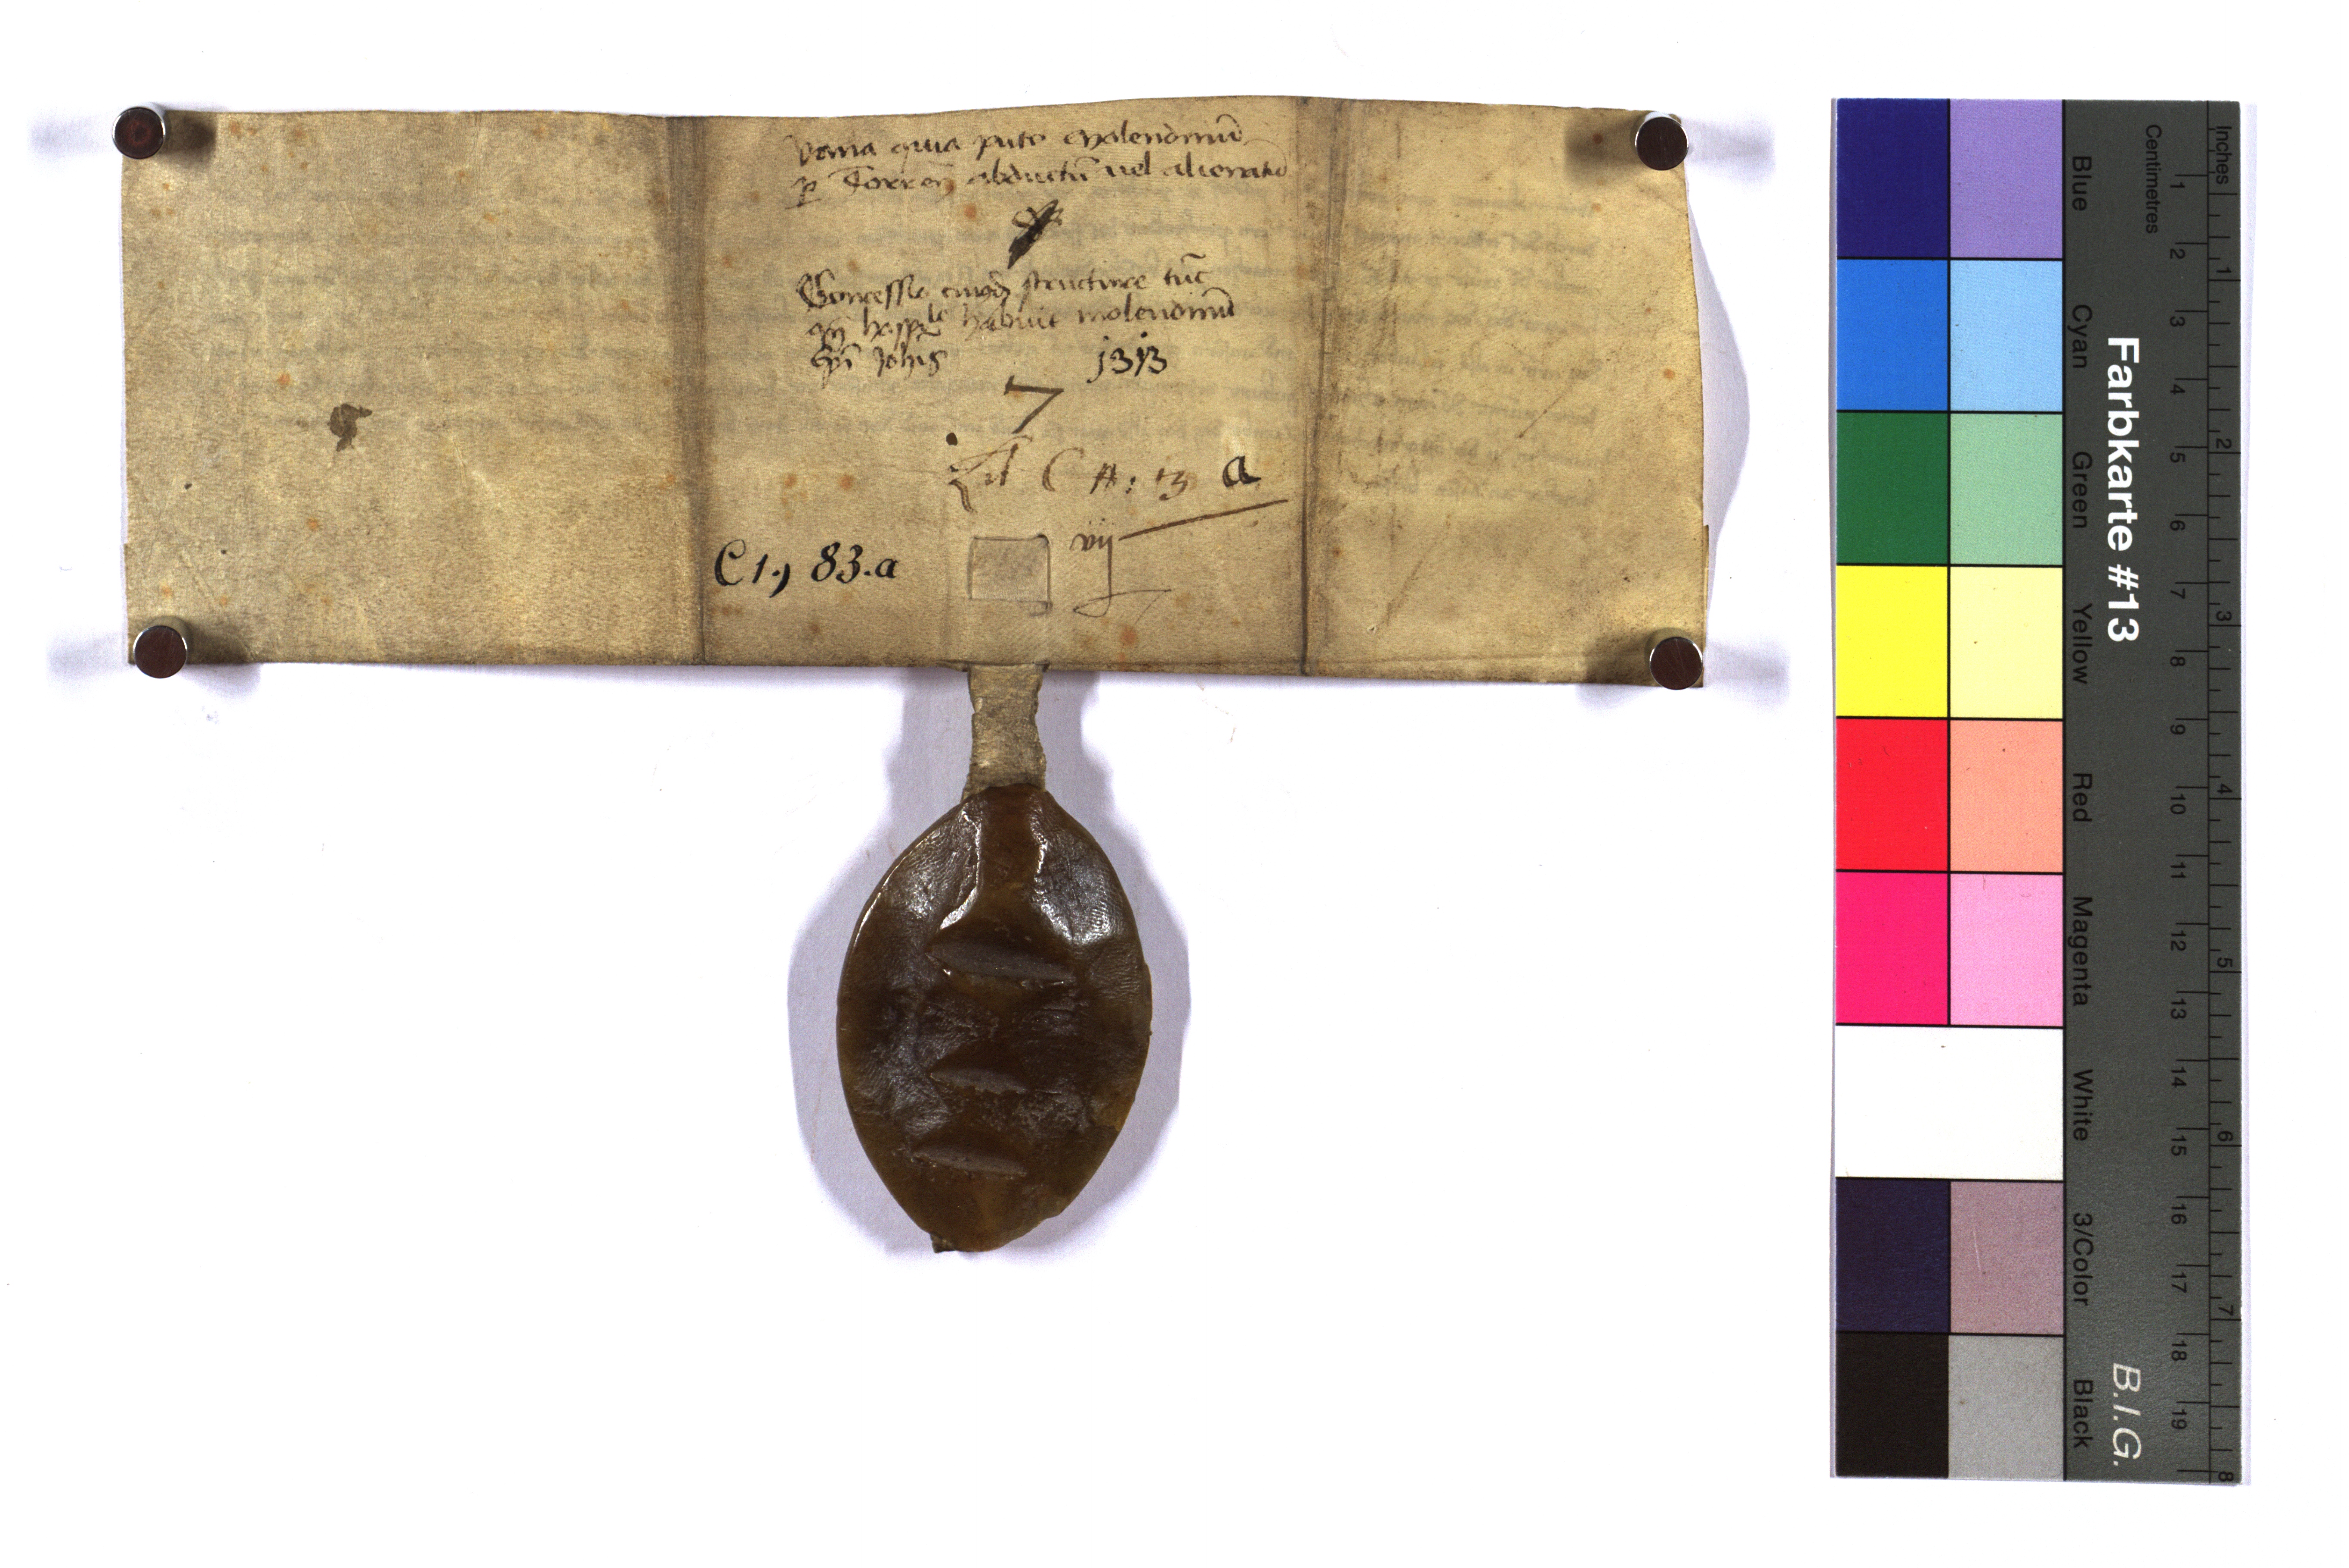 vana quia puto molendinū
p Torren abductū vel alienatū
Concessio cuiusdā structure tūc
qn hospitale habuit molendinū
Sci Johis 1313
7
Lit C #: 13 a
vij
C 1., 83.a
Farbkarte #13
B.I.G.
Blue
Cyan
Green
Yellow
Red
Magenta
White
3/Color
Black
Centimetres
1 2 3 4 5 6 7 8 9 10 11 12 13 14 15 16 17 18 19
Inches
1 2 3 4 5 6 7 8